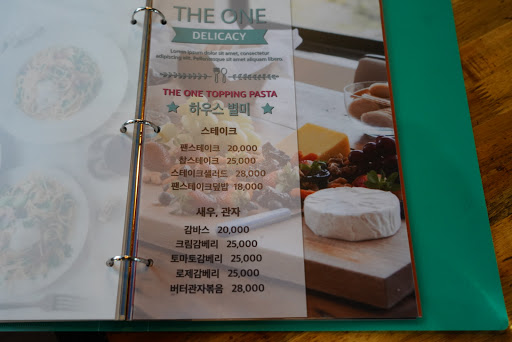 THE ONE
DELICACY
Lorem ipsum dolor sit amet, consectetur
adipiscing elit. Pellentesque sit amet aliquam libero.
THE ONE TOPPING PASTA
하우스 별미
스테이크
팬스테이크 20,000
찹스테이크 25,000
스테이크샐러드 28,000
팬스테이크덮밥 18,000
새우, 관자
감바스 20,000
크림감베리 25,000
토마토감베리 25,000
로제감베리 25,000
버터관자볶음 28,000